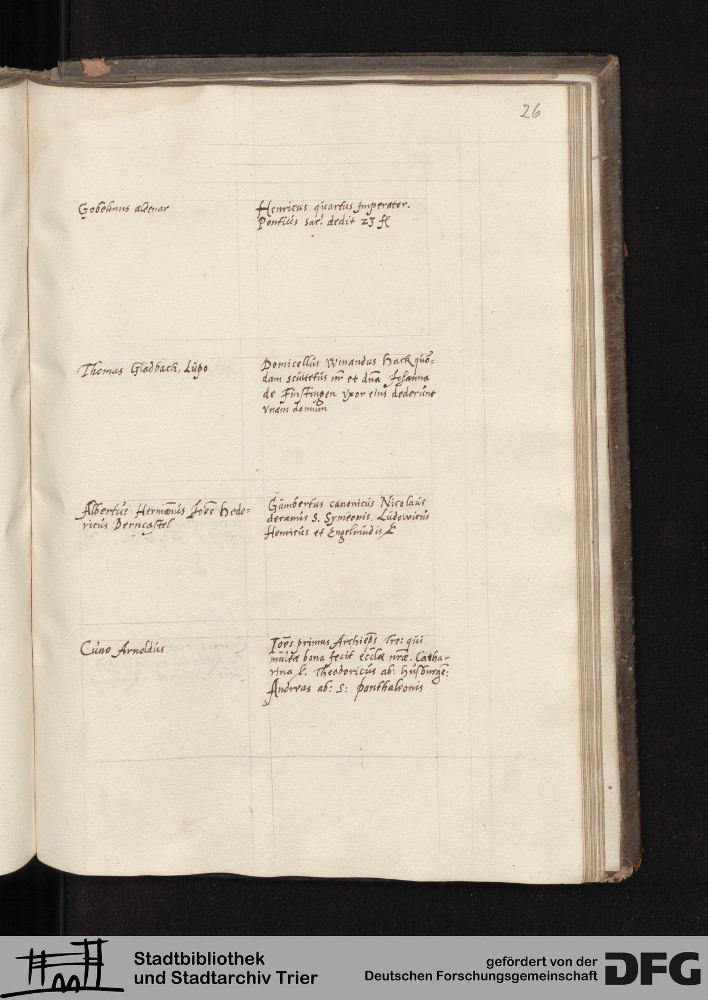 26
Gobelinus aldenar
Henricus quartus Imperator.
Pontius sac: dedit 23 fl
Thomas Gladbach, Lupo
Domicellus Winandus Hack quō=
dam scultetus nr̄ et dna Johanna
de Finstingen vxor eius dederunt
vnam domum
Albertus Hermanus Joēs Hede=
ricus Berncastel
Gumbertus canonicus Nicolaus
decanus S. Symeonis. Ludowicus
Henricus et Engelmudis L
Cuno Arnoldus
Joēs primus Archiep̄s Tre: qui
multa bona fecit eccl̄æ nr̄æ. Cathar
rina L. Theodoricus ab: Husburgē:
Andreas ab: S: panthaleonis
Stadtbibliothek
und Stadtarchiv Trier
gefördert von der
Deutschen Forschungsgemeinschaft
DFG